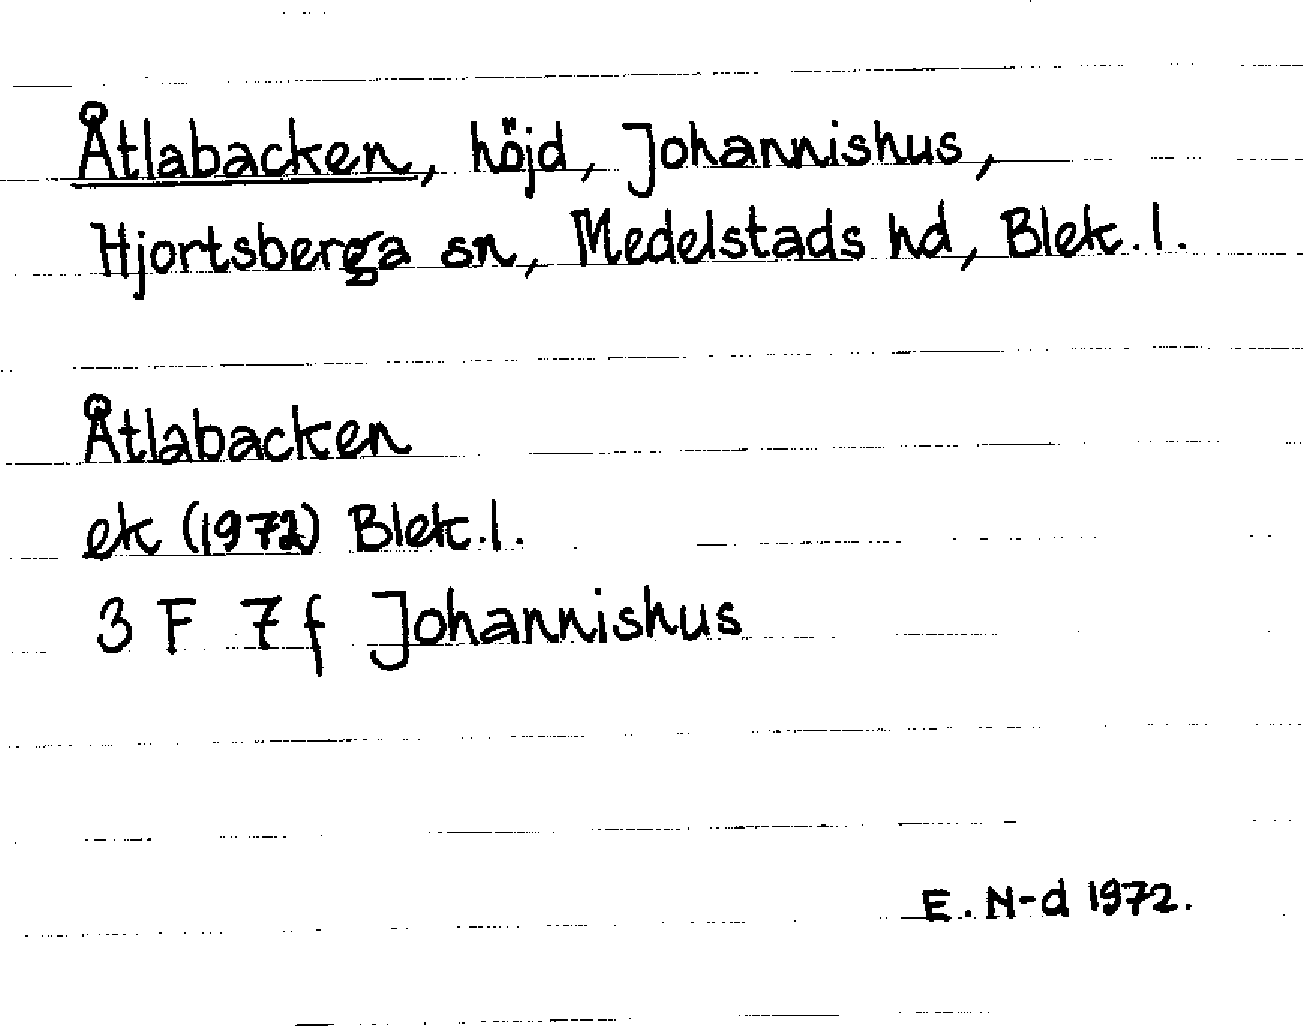 Åtlabacken, höjd, Johannishus,
Hjortsberga sn, Medelstads hd, Blek.l.
Åtlabacken
ek (1972) Blek.l.
3 F 7 f Johannishus
E. N-d 1972.